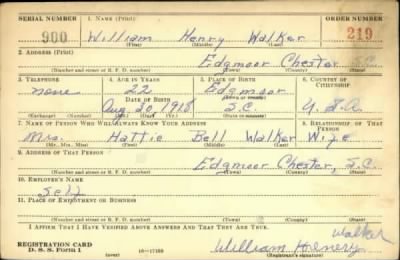 SERIAL NUMBER 1. NAME (Print) ORDER NUMBER
900 William Henry Walker 219
(First) (Middle) (Last)
2. ADDRESS (Print)
Edgmoor Chester S.C.
(Number and street or R. F. D. number) (Town) (County) (State)
3. TELEPHONE 4. AGE IN YEARS 5. PLACE OF BIRTH 6. COUNTRY OF CITIZENSHIP
none 22 Edgmoor
DATE OF BIRTH
Aug. 30 1918 S.C. U.S.A
(Exchange) (Number) (Mo.) (Day) (Yr.) (State or county)
7. NAME OF PERSON WHO WILL ALWAYS KNOW YOUR ADDRESS 8. RELATIONSHIP OF THAT PERSON
Mrs. Hattie Bell Walker Wife
(Mr., Mrs., Miss) (First) (Middle) (Last)
9. ADDRESS OF THAT PERSON
Edgmoor Chester, S.C.
(Number and street or R. F. D. number) (Town) (County) (State)
10. EMPLOYER'S NAME
Self
11. PLACE OF EMPLOYMENT OR BUSINESS
(Number and street or R. F. D. number) (Town) (County) (State)
I AFFIRM THAT I HAVE VERIFIED ABOVE ANSWERS AND THAT THEY ARE TRUE.
Walker
REGISTRATION CARD William Henery
D. S. S. Form 1 (over) (Registrant's signature)